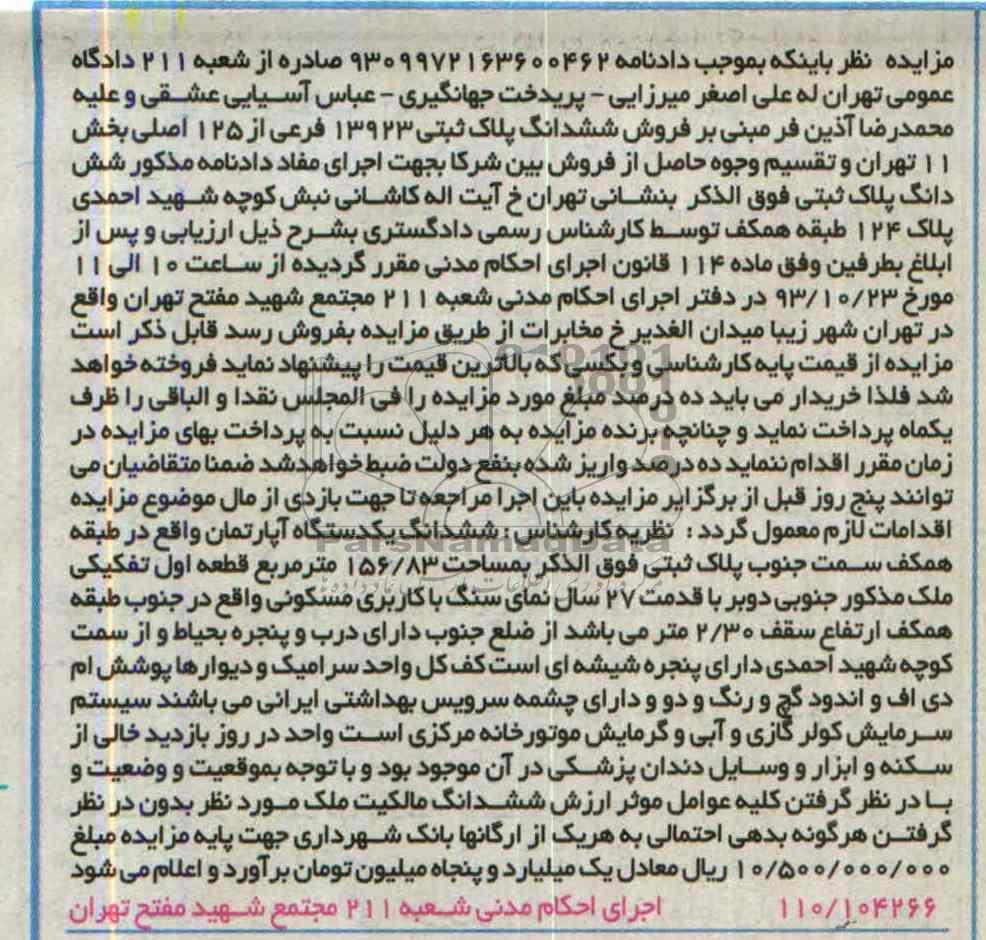 مزایده نظر باینکه بموجب دادنامه ۹۳۰۹۹۷۲۱۶۳۶۰۰۴۶۲ صادره از شعبه ۲۱۱ دادگاه
عمومی تهران له علی اصغر میرزایی - پریدخت جهانگیری - عباس آسیایی عشقی و علیه
محمدرضا آذین فر مبنی بر فروش ششدانگ پلاک ثبتی ۱۳۹۲۳ فرعی از ۱۲۵ اصلی بخش
۱۱ تهران و تقسیم وجوه حاصل از فروش بین شرکا بجهت اجرای مفاد دادنامه مذکور شش
دانگ پلاک ثبتی فوق الذکر بنشانی تهران خ آیت اله کاشانی نبش کوچه شهید احمدی
پلاک ۱۲۴ طبقه همکف توسط کارشناس رسمی دادگستری بشرح ذیل ارزیابی و پس از
ابلاغ بطرفین وفق ماده ۱۱۴ قانون اجرای احکام مدنی مقرر گردیده از ساعت ۱۰ الی ۱۱
مورخ ۹۳/۱۰/۲۳ در دفتر اجرای احکام مدنی شعبه ۲۱۱ مجتمع شهید مفتح تهران واقع
در تهران شهر زیبا میدان الغدیر خ مخابرات از طریق مزایده بفروش رسد قابل ذکر است
مزایده از قیمت پایه کارشناسی و بکسی که بالاترین قیمت را پیشنهاد نماید فروخته خواهد
شد فلذا خریدار می باید ده درصد مبلغ مورد مزایده را فی المجلس نقدا و الباقی را ظرف
یکماه پرداخت نماید و چنانچه برنده مزایده به هر دلیل نسبت به پرداخت بهای مزایده در
زمان مقرر اقدام ننماید ده درصد واریز شده بنفع دولت ضبط خواهدشد ضمنا متقاضیان می
توانند پنج روز قبل از برگزایر مزایده باین اجرا مراجعه تا جهت بازدی از مال موضوع مزایده
اقدامات لازم معمول گردد : نظریه کارشناس : ششدانگ یکدستگاه آپارتمان واقع در طبقه
همکف سمت جنوب پلاک ثبتی فوق الذکر بمساحت ۱۵۶/۸۳ مترمربع قطعه اول تفکیکی
ملک مذکور جنوبی دوبر با قدمت ۲۷ سال نمای سنگ با کاربری مسکونی واقع در جنوب طبقه
همکف ارتفاع سقف ۲/۳۰ متر می باشد از ضلع جنوب دارای درب و پنجره بحیاط و از سمت
کوچه شهید احمدی دارای پنجره شیشه ای است کف کل واحد سرامیک و دیوارها پوشش ام
دی اف و اندود گچ و رنگ و دو و دارای چشمه سرویس بهداشتی ایرانی می باشند سیستم
سرمایش کولر گازی و آبی و گرمایش موتورخانه مرکزی است واحد در روز بازدید خالی از
سکنه و ابزار و وسایل دندان پزشکی در آن موجود بود و با توجه بموقعیت و وضعیت و
با در نظر گرفتن کلیه عوامل موثر ارزش ششدانگ مالکیت ملک مورد نظر بدون در نظر
گرفتن هرگونه بدهی احتمالی به هریک از ارگانها بانک شهرداری جهت پایه مزایده مبلغ
۱۰/۵۰۰/۰۰۰/۰۰۰ ریال معادل یک میلیارد و پنجاه میلیون تومان برآورد و اعلام می شود
۱۱۰/۱۰۴۲۶۶ اجرای احکام مدنی شعبه ۲۱۱ مجتمع شهید مفتح تهران
ParsNamadData